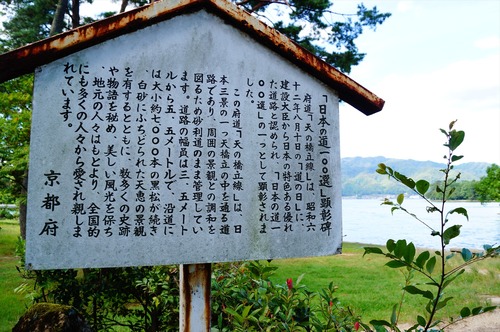 「日本の道一〇〇選」顕彰碑
府道「天の橋立線」は、昭和六
十二年八月十日の「道の日」に、
建設大臣から日本の特色ある優れ
た道路と認められ、「日本の道一
〇〇選」の一つとして顕彰されま
した。
この府道「天の橋立線」は、日
本三景の一つ天橋立の中を通る道
路であり、周囲の景観との調和を
図るため砂利道のまま管理してい
ます。道路の幅員は三・五メート
ルから五・五メートルで、沿道に
は大小約七〇〇〇本の黒松が続き
、白砂にふちどられた天恵の景観
を有するとともに、数多くの史跡
や物語を秘め、美しい風光を保ち
、地元の人々はもとより、全国的
にも多くの人々から愛され親しま
れています。
京都府